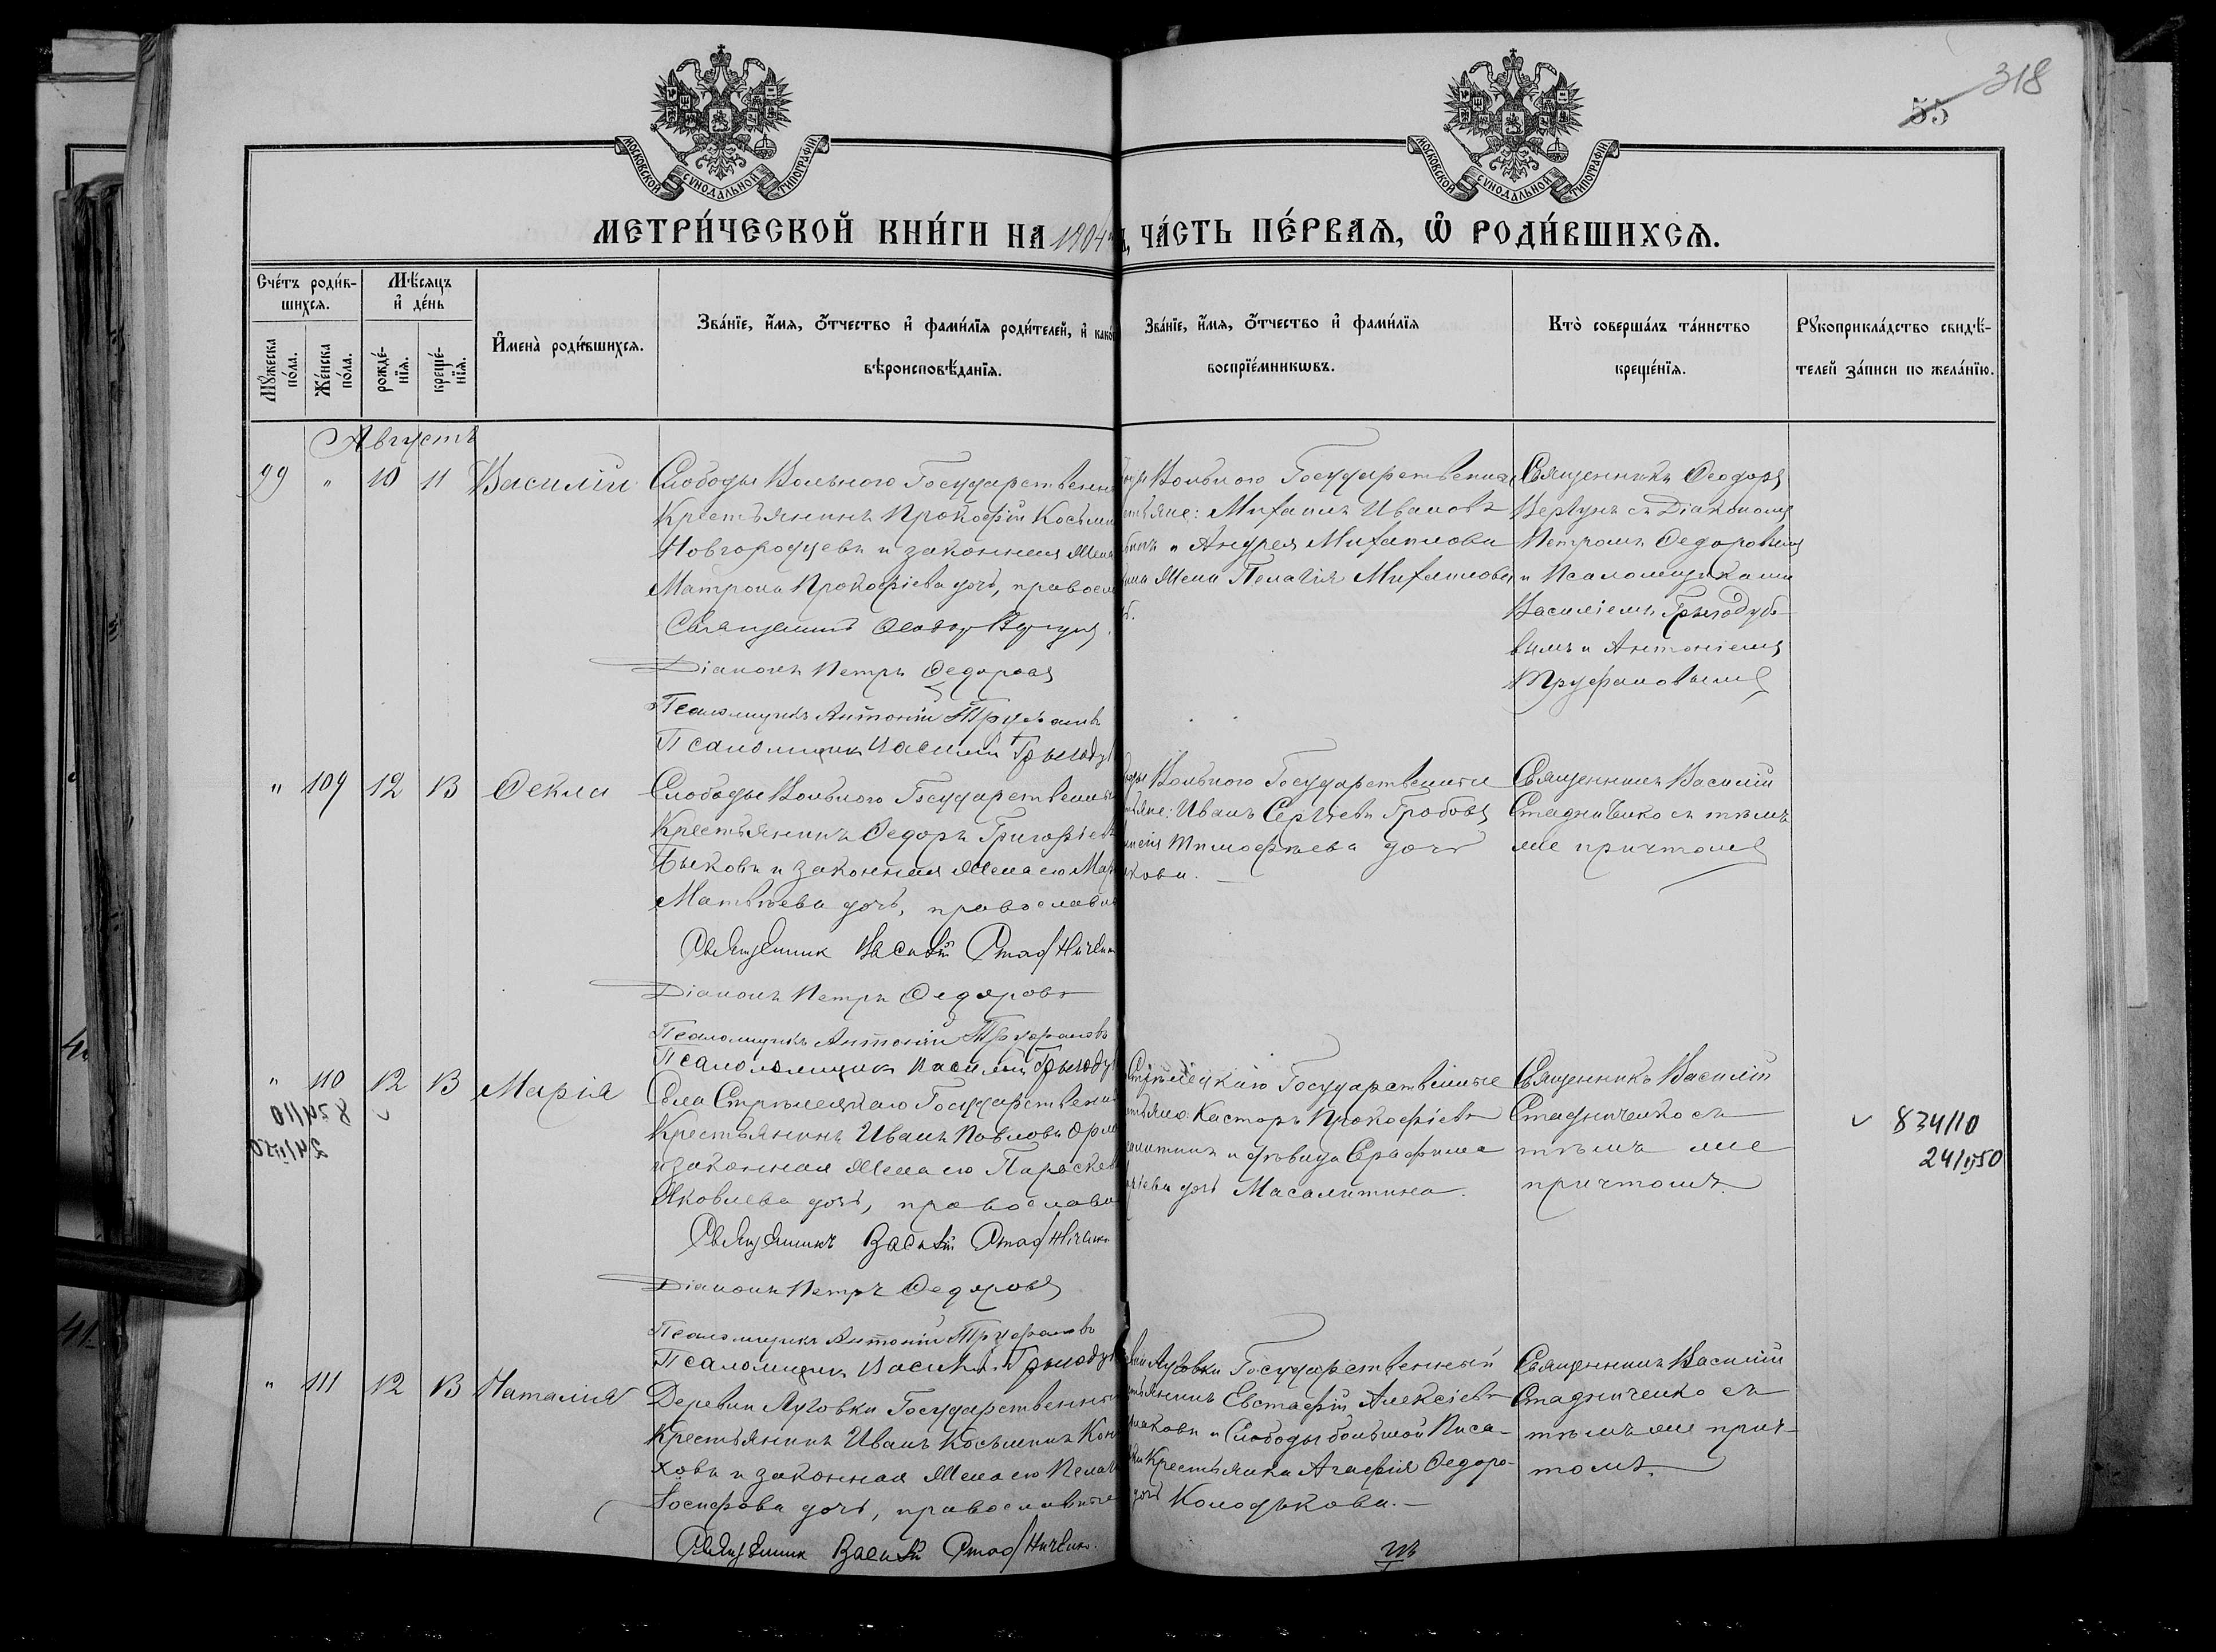 318
55
МОСКОВСКОЙ СѴНОДАЛЬНОЙ ТИПОГРАФІИ
МОСКОВСКОЙ СѴНОДАЛЬНОЙ ТИПОГРАФІИ
МЕТРИ́ЧЕСКОЙ КНИ́ГИ НА 1904
ЧА́СТЬ ПЕ́РВАѦ, Ѽ РОДИ́ВШИХСѦ.
Сче́тъ роди́в-
шихсѧ.
Мꙋжеска
по́ла.
Же́нска
по́ла.
Мѣ́сѧцъ
и҆ де́нь
рожде́-
нїѧ.
креще́-
нїѧ.
И҆мена̀ роди́вшихсѧ.
Зва́нїе, и҆́мѧ, ѻ҆́тчество и҆ фами́лїѧ роди́телей, и҆ како́
вѣроисповѣ́данїѧ.
Зва́нїе, и҆́мѧ, ѻ҆́тчество и҆ фами́лїѧ
воспрїе́мникѡвъ.
Кто̀ соверша́лъ та́инство
креще́нїѧ.
Рꙋкоприкла́дство свидѣ́-
телей за́писи по жела́нїю.
Августъ
99 " 10 11 Василій
Слободы Вольного Государственн
Крестьянинъ Прокофій Косьмин
Новгородцевъ и законная жена
Матрона Прокофіева дочь, правосл
Священникъ Феодоръ
Діаконъ Петръ Федоровъ
Псаломщикъ Антоній Труфановъ
Псаломщикъ Василій
Вольного Государственные
Михаилъ Ивановъ
и Андрея Михайлова
жена Пелагія Михайлова
Священникъ Феодоръ
съ Діакономъ
Петромъ Федоровымъ
и Псаломщиками
Василіемъ
вымъ и Антоніемъ
Труфановымъ
" 109 12 13 Фекла
Слободы Вольного Государственный
Крестьянинъ Федоръ Григорьевъ
Быковъ и законная жена его Мар
Матвѣева дочь, православн
Священник Василій Стадничен
Діаконъ Петръ Федоровъ
Псаломщикъ Антоній Труфановъ
Псаломщикъ Василій
Вольного Государственные
Иванъ Сергѣевъ Гробовъ
Тимофѣева дочь
кова.
Священникъ Василій
Стадниченко съ тѣмъ
же причтомъ
" 110 12 13 Марія
834/10
24/1150
Села Стрѣлецкаго Государственн
Крестьянинъ Иванъ Павловъ Орло
и законная жена его Параскев
Яковлева дочь, православн
Священникъ Василій Стадниченко
Діаконъ Петръ Федоровъ
Псаломщикъ Антоній Труфановъ
Псаломщик Василій
Стрѣлецкаго Государственные
Касторъ Прокофіевъ
и дѣвица Серафима
дочь Масалитина.
Священникъ Василій
Стадниченко съ
тѣмъ же
причтомъ.
834/10
24/1150
" 111 12 13 Наталія
Деревни Луговки Государственный
Крестьянинъ Иванъ Косьминъ Кон
ховъ и законная жена его Пелаг
Іосифова дочь, православные
Священник Василій Стадниченко.
Луговки Государственный
Евстафій Алексіевъ
и Слободы большой Писа-
Крестьянка Агафія Федоро-
дочь Колодякова.
Священникъ Василій
Стадниченко съ
тѣмъ же прич-
томъ.